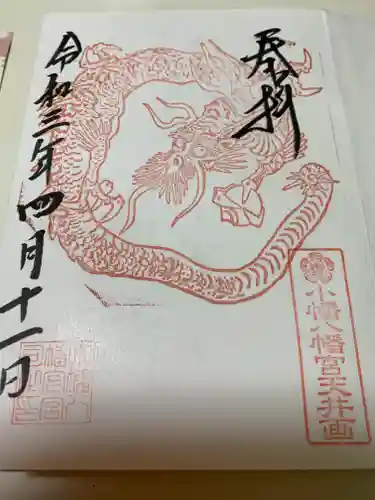 奉拝
小幡八幡宮天井画
令和三年四月十一日